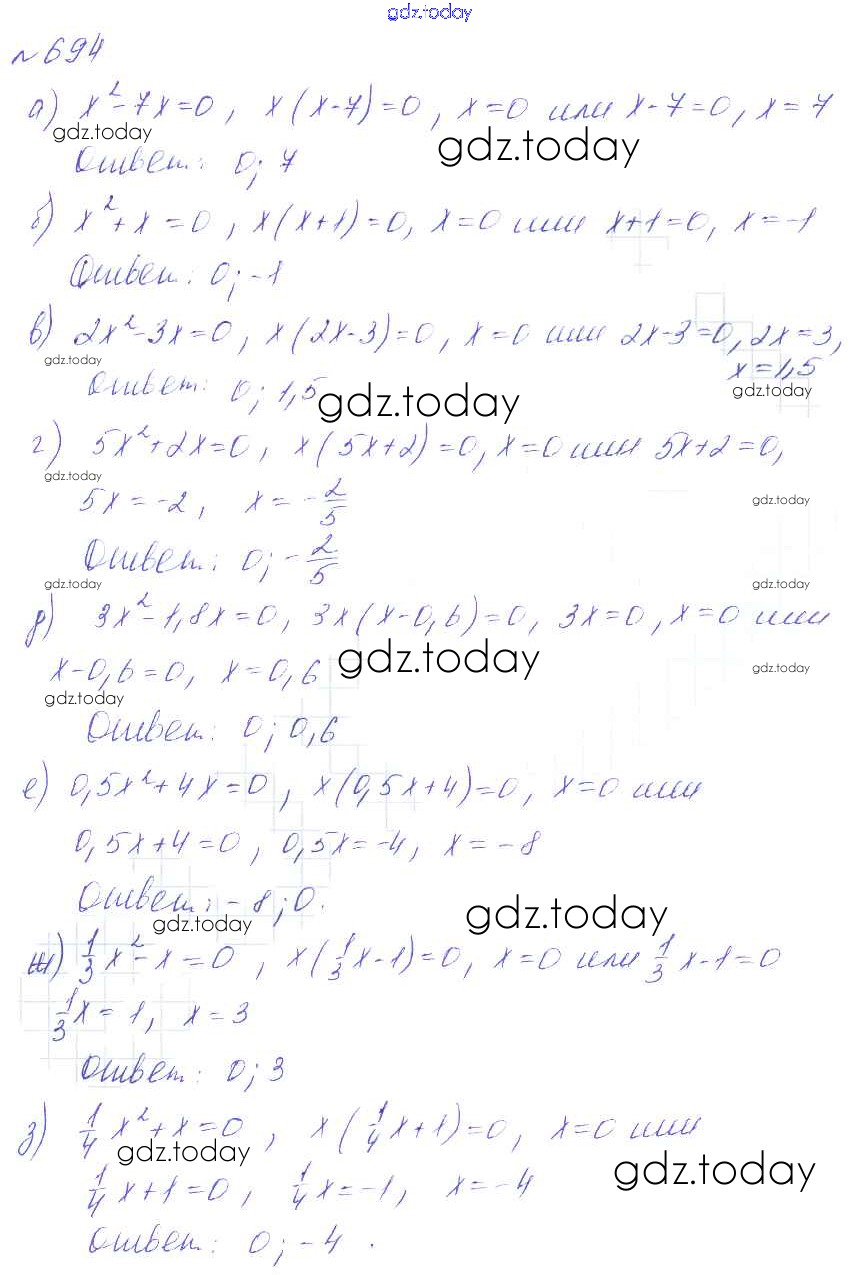 gdz.today
№694
а) x²-7x=0, x(x-7)=0, x=0 или x-7=0, x=7
gdz.today
gdz.today
Ответ: 0; 7
б) x²+x=0, x(x+1)=0, x=0 или x+1=0, x=-1
Ответ: 0; -1
в) 2x²-3x=0, x(2x-3)=0, x=0 или 2x-3=0, 2x=3,
gdz.today
x=1,5
Ответ: 0; 1,5
gdz.today
gdz.today
г) 5x²+2x=0, x(5x+2)=0, x=0 или 5x+2=0,
gdz.today
5x=-2, x=-2/5
gdz.today
Ответ: 0; -2/5
gdz.today
gdz.today
д) 3x²-1,8x=0, 3x(x-0,6)=0, 3x=0, x=0 или
gdz.today
x-0,6=0, x=0,6
gdz.today
gdz.today
Ответ: 0; 0,6
е) 0,5x²+4x=0, x(0,5x+4)=0, x=0 или
0,5x+4=0, 0,5x=-4, x=-8
Ответ: -8; 0.
gdz.today
gdz.today
ж) 1/3x²-x=0, x(1/3x-1)=0, x=0 или 1/3x-1=0
1/3x=1, x=3
Ответ: 0; 3
з) 1/4x²+x=0, x(1/4x+1)=0, x=0 или
gdz.today
gdz.today
1/4x+1=0, 1/4x=-1, x=-4
Ответ: 0; -4.